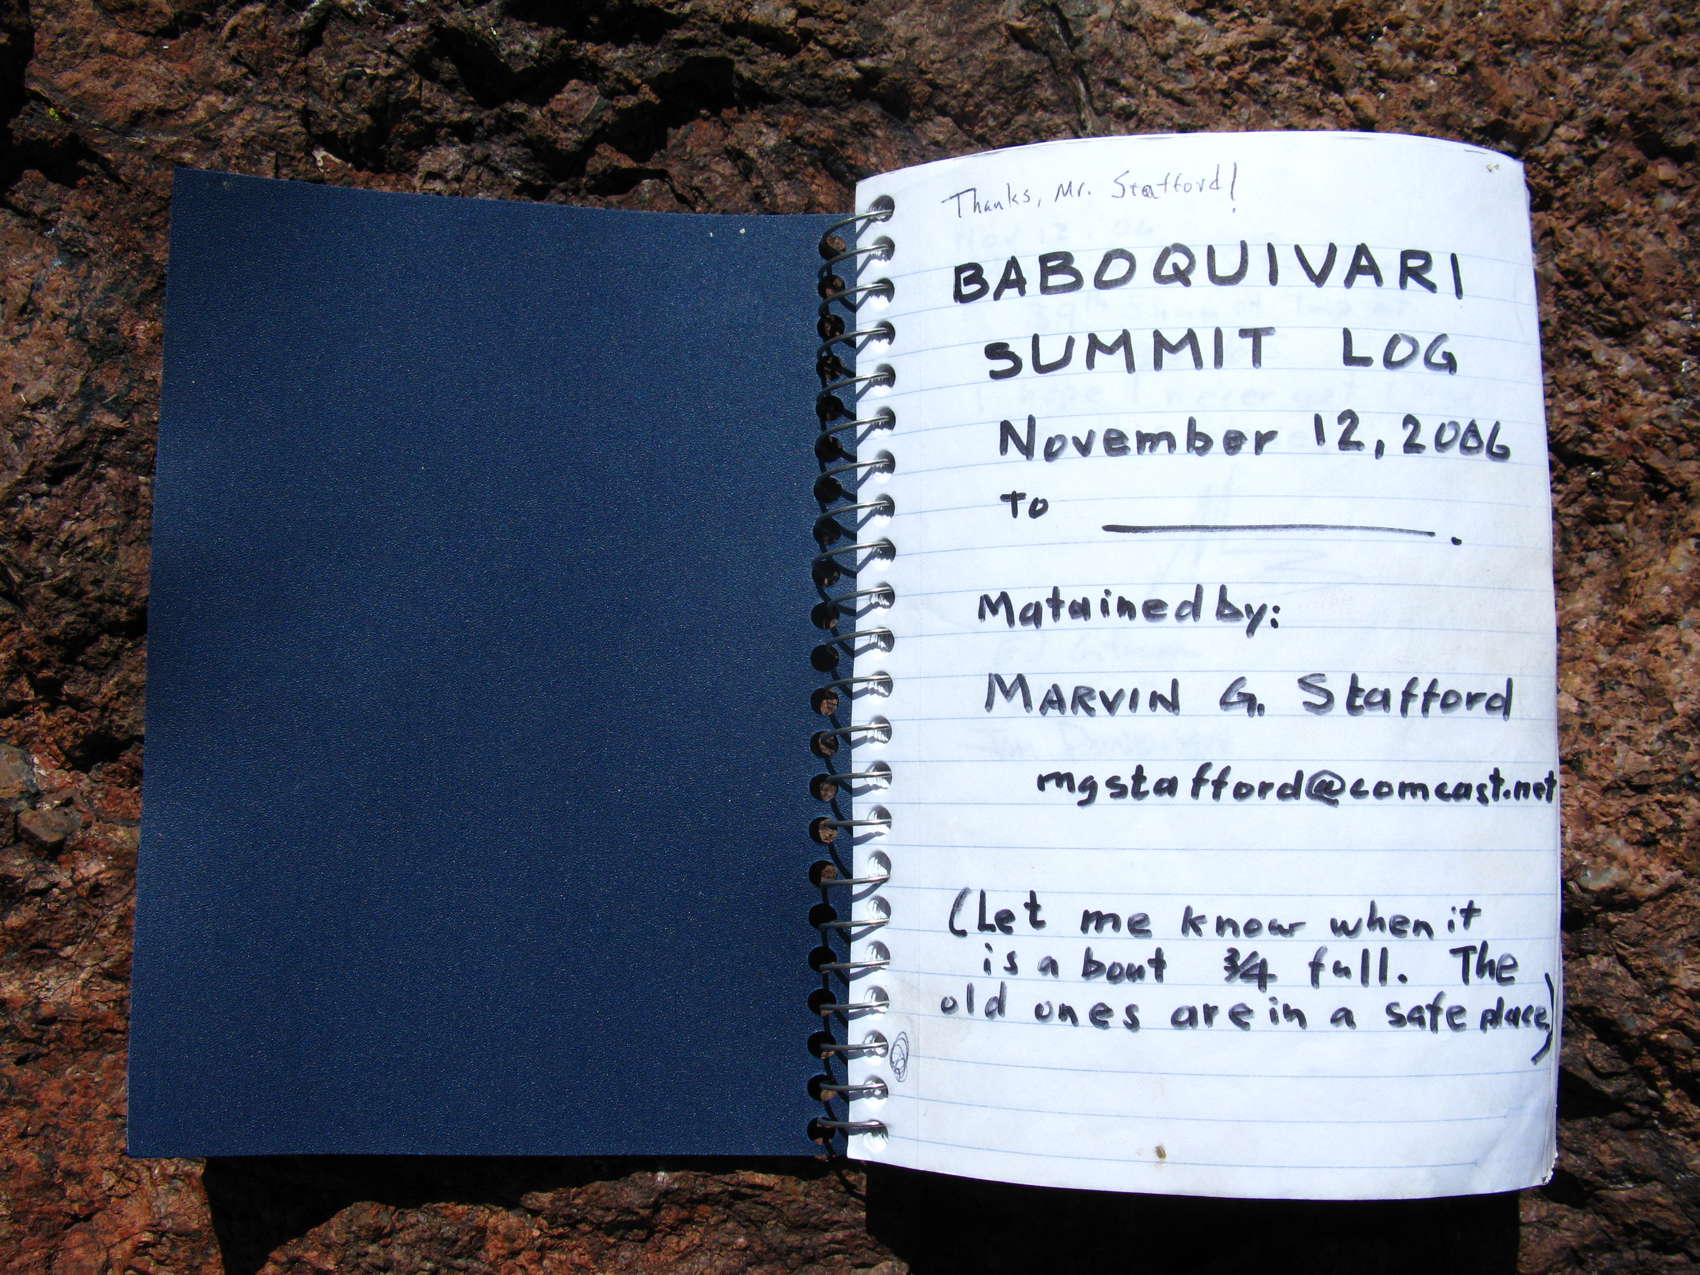 Thanks, Mr. Stafford!
BABOQUIVARI
SUMMIT LOG
November 12, 2006
To ____________.
Matained by:
MARVIN G. Stafford
mgstafford@comcast.net
(Let me know when it
is a bout 3/4 full. The
old ones are in a safe place)